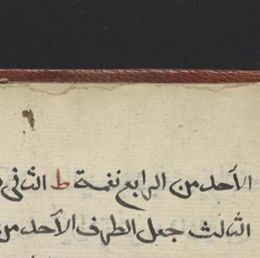 الأحد من الرابع نغمة ط الثانى
الثالث جعل الطرف الأحد من